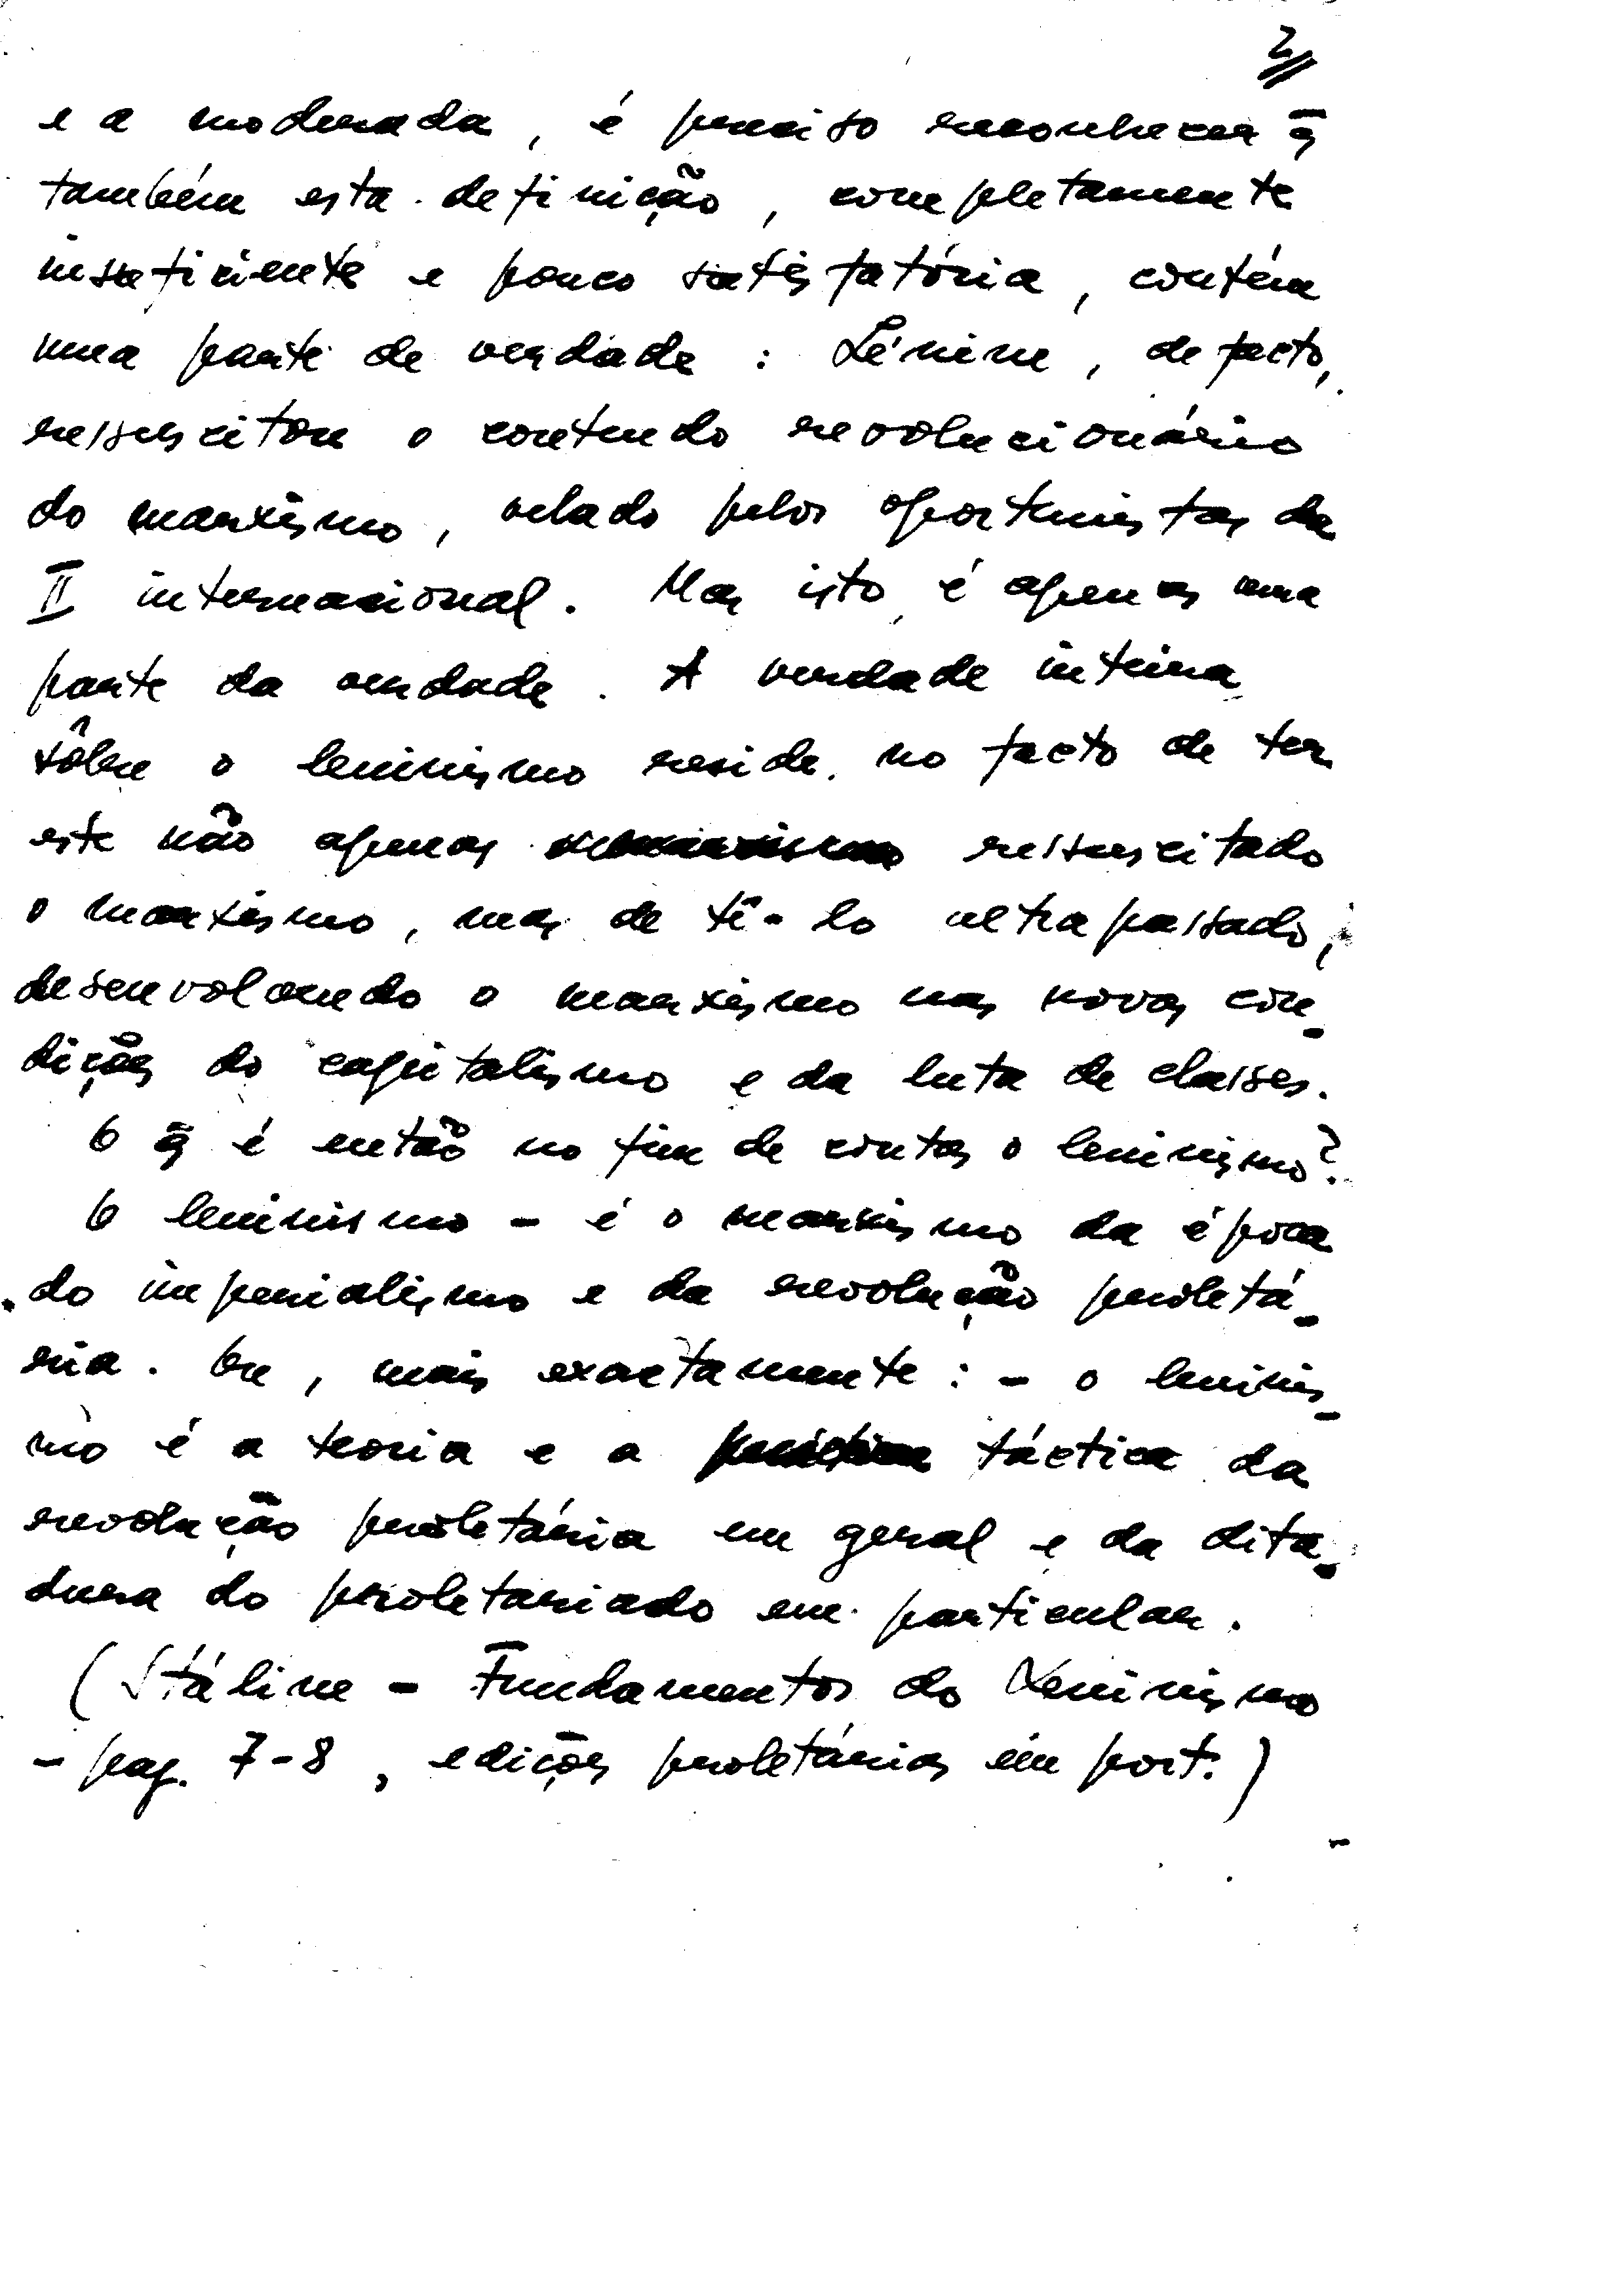 2
e a moderada, é preciso reconhecer q̄
também esta definição, completamente
insuficiente e pouco satisfatória, contém
uma parte de verdade : Lénine, de facto,
ressuscitou o conteudo revolucionário
do marxismo, velado pelos oportunistas da
II internacional. Mas isto é apenas uma
parte da verdade. A verdade inteira
sôbre o leninismo reside no facto de ter
este não apenas ressuscitado
o marxismo, mas de tê-lo ultrapassado,
desenvolvendo o marxismo nas novas con-
dições do capitalismo e da luta de classes.
O q̄ é então no fim de contas o leninismo?
O leninismo - é o marxismo da época
do imperialismo e da revolução proletá-
ria. Ou, mais exactamente : - o leninis-
mo é a teoria e a táctica da
revolução proletária em geral e da dita-
dura do proletariado em particular.
(Stáline - Fundamentos do Leninismo
- pag. 7-8, edições proletárias em port.)